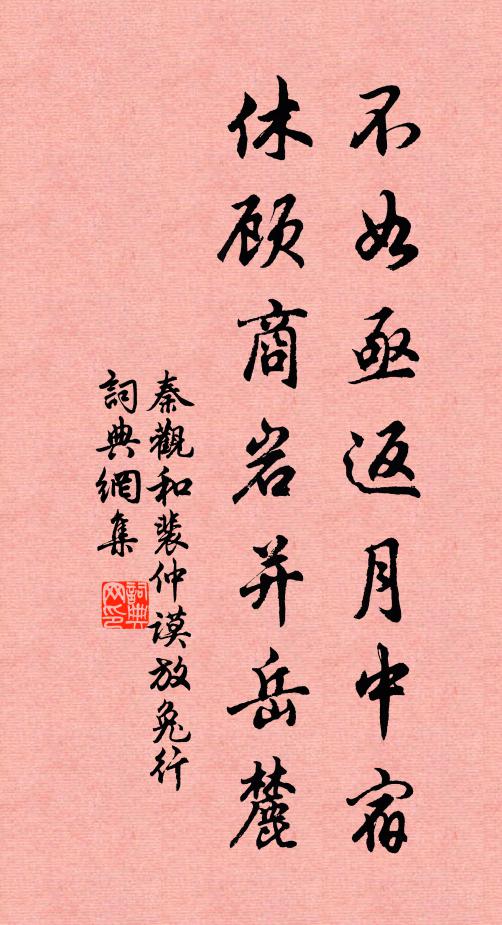 不如亟返月中宿
休顾商岩并岳麓
秦觀和裴仲謨放兔行
詞典網集
詞典网印